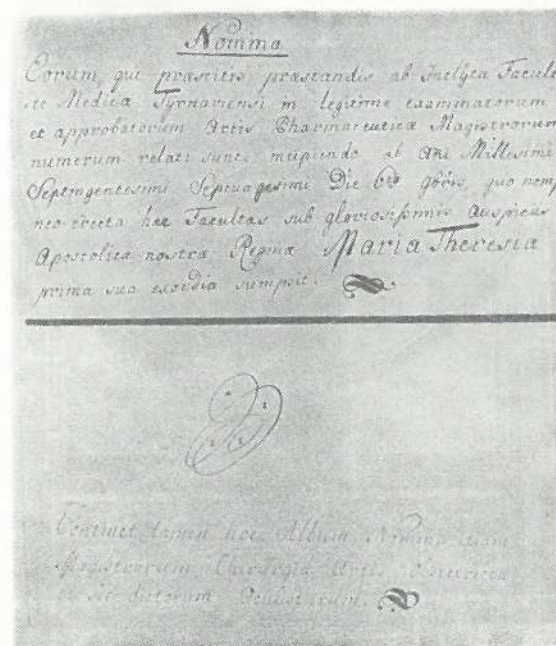 Nomina
Eorum, qui praestitis praestandis ab Inclyta Facult
te Medica Tyrnaviensi in legitime examinatorum
et approbatorum Artis Pharmaceuticae Magistrorum
numerum relati sunt. incipiendo ab Ani Millesimi
Septingentesimi Septuagesimi Die 6ta 9bris, quo nem
neo erecta haec Facultas sub gloriosissimis Auspiciis
Apostolicae nostrae Reginae Maria Theresia
prima sua exordia sumpsit.
Continet tamen hoc Album Nomina etiam
Magistrorum Chirurgiae Artis Obstetriciae
et sic dictorum Oculistarum.